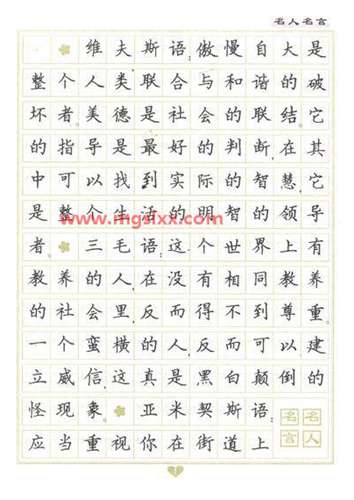 名人名言
维夫斯语:傲慢自大是
整个人类联合与和谐的破
坏者。美德是社会的联结。它
的指导是最好的判断,在其
中可以找到实际的智慧,它
是整个生活的明智的领导
www.mgslxx.com
者。三毛语:这个世界上有
教养的人,在没有相同教养
的社会里,反而得不到尊重。
一个蛮横的人,反而可以建
立威信,这真是黑白颠倒的
怪现象。亚米契斯语:
应当重视你在街道上
名人
名言